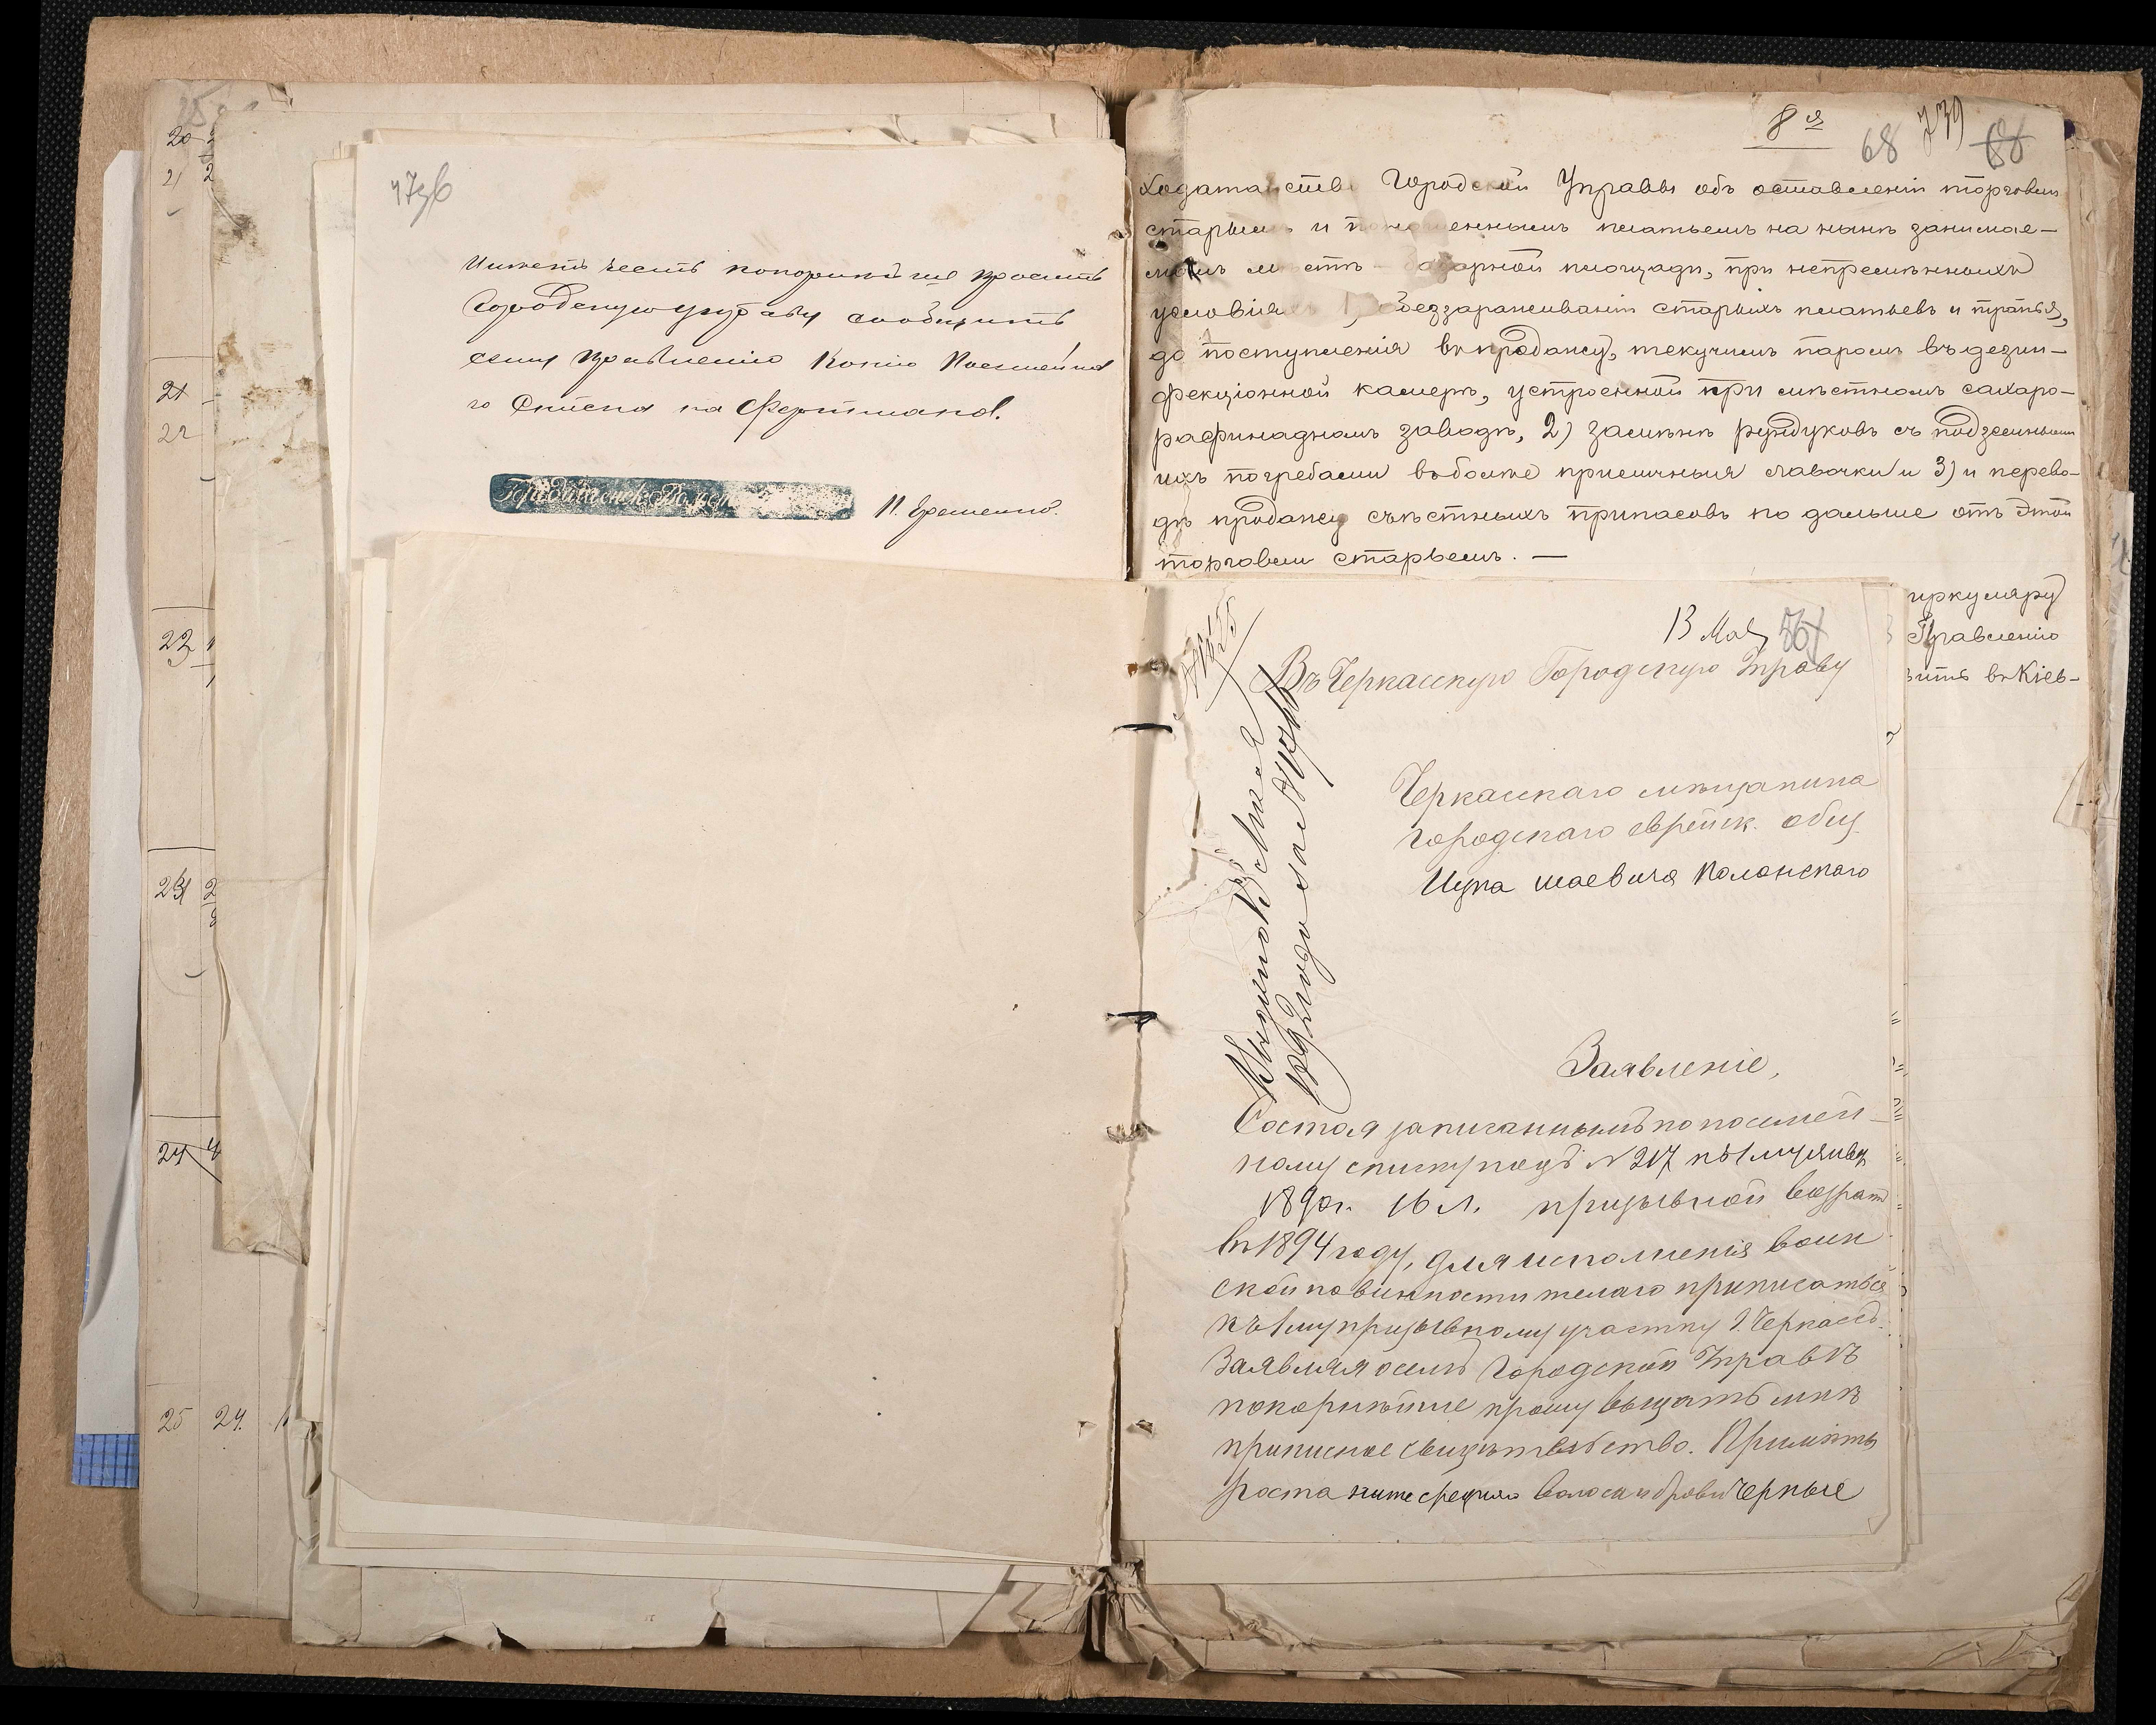 20
21 2
21
22
23
24 2
24 4
25 24.
Имѣетъ честь покорнѣйше просить
Городскую управу сообщить
сему правлению копию Посемейна
го Списка на
И. Еременко.
8 я
68 739 68
Ходатайство Городской Управы объ оставленіи торговли
старымъ и поношеннымъ платьемъ на нынѣ занимае-
момъ мѣстѣ - базарной площади, при непремѣнныхъ
условіяхъ 1) обеззараживаніи старыхъ платьевъ и тряпья,
до поступленія въ продажу, текучимъ паромъ въ дезин-
фекціонной камерѣ, устроенной при мѣстномъ сахаро-
рафинадномъ заводѣ, 2) замѣнѣ рундуковъ съ подземными
ихъ погребами въ болѣе приличныя лавочки и 3) и перево-
дѣ продажу съѣстныхъ припасовъ по дальше отъ этой
торговли старьемъ. —
иркуляру
Правленію
вить въ Кіев-
13 Мая
Въ Черкасскую Городскую Управу
Черкасскаго мѣщанина
городскаго еврейск. общ.
Ицка Шаевича Полонскаго
Заявленіе,
Состоя записаннымъ по посемей-
ному списку подъ № 217 къ 1 му января
1890 г. 16 л. призывной возраст
въ 1894 году, для исполненія воин
ской повинности желаю приписаться
къ 1 му призывному участку г. Черкассъ.
Заявляя о семъ Городской Управѣ
покорнѣйше прошу выдать мнѣ
приписное свидѣтельство. Примѣты
роста ниже средняго волоса и брови черные